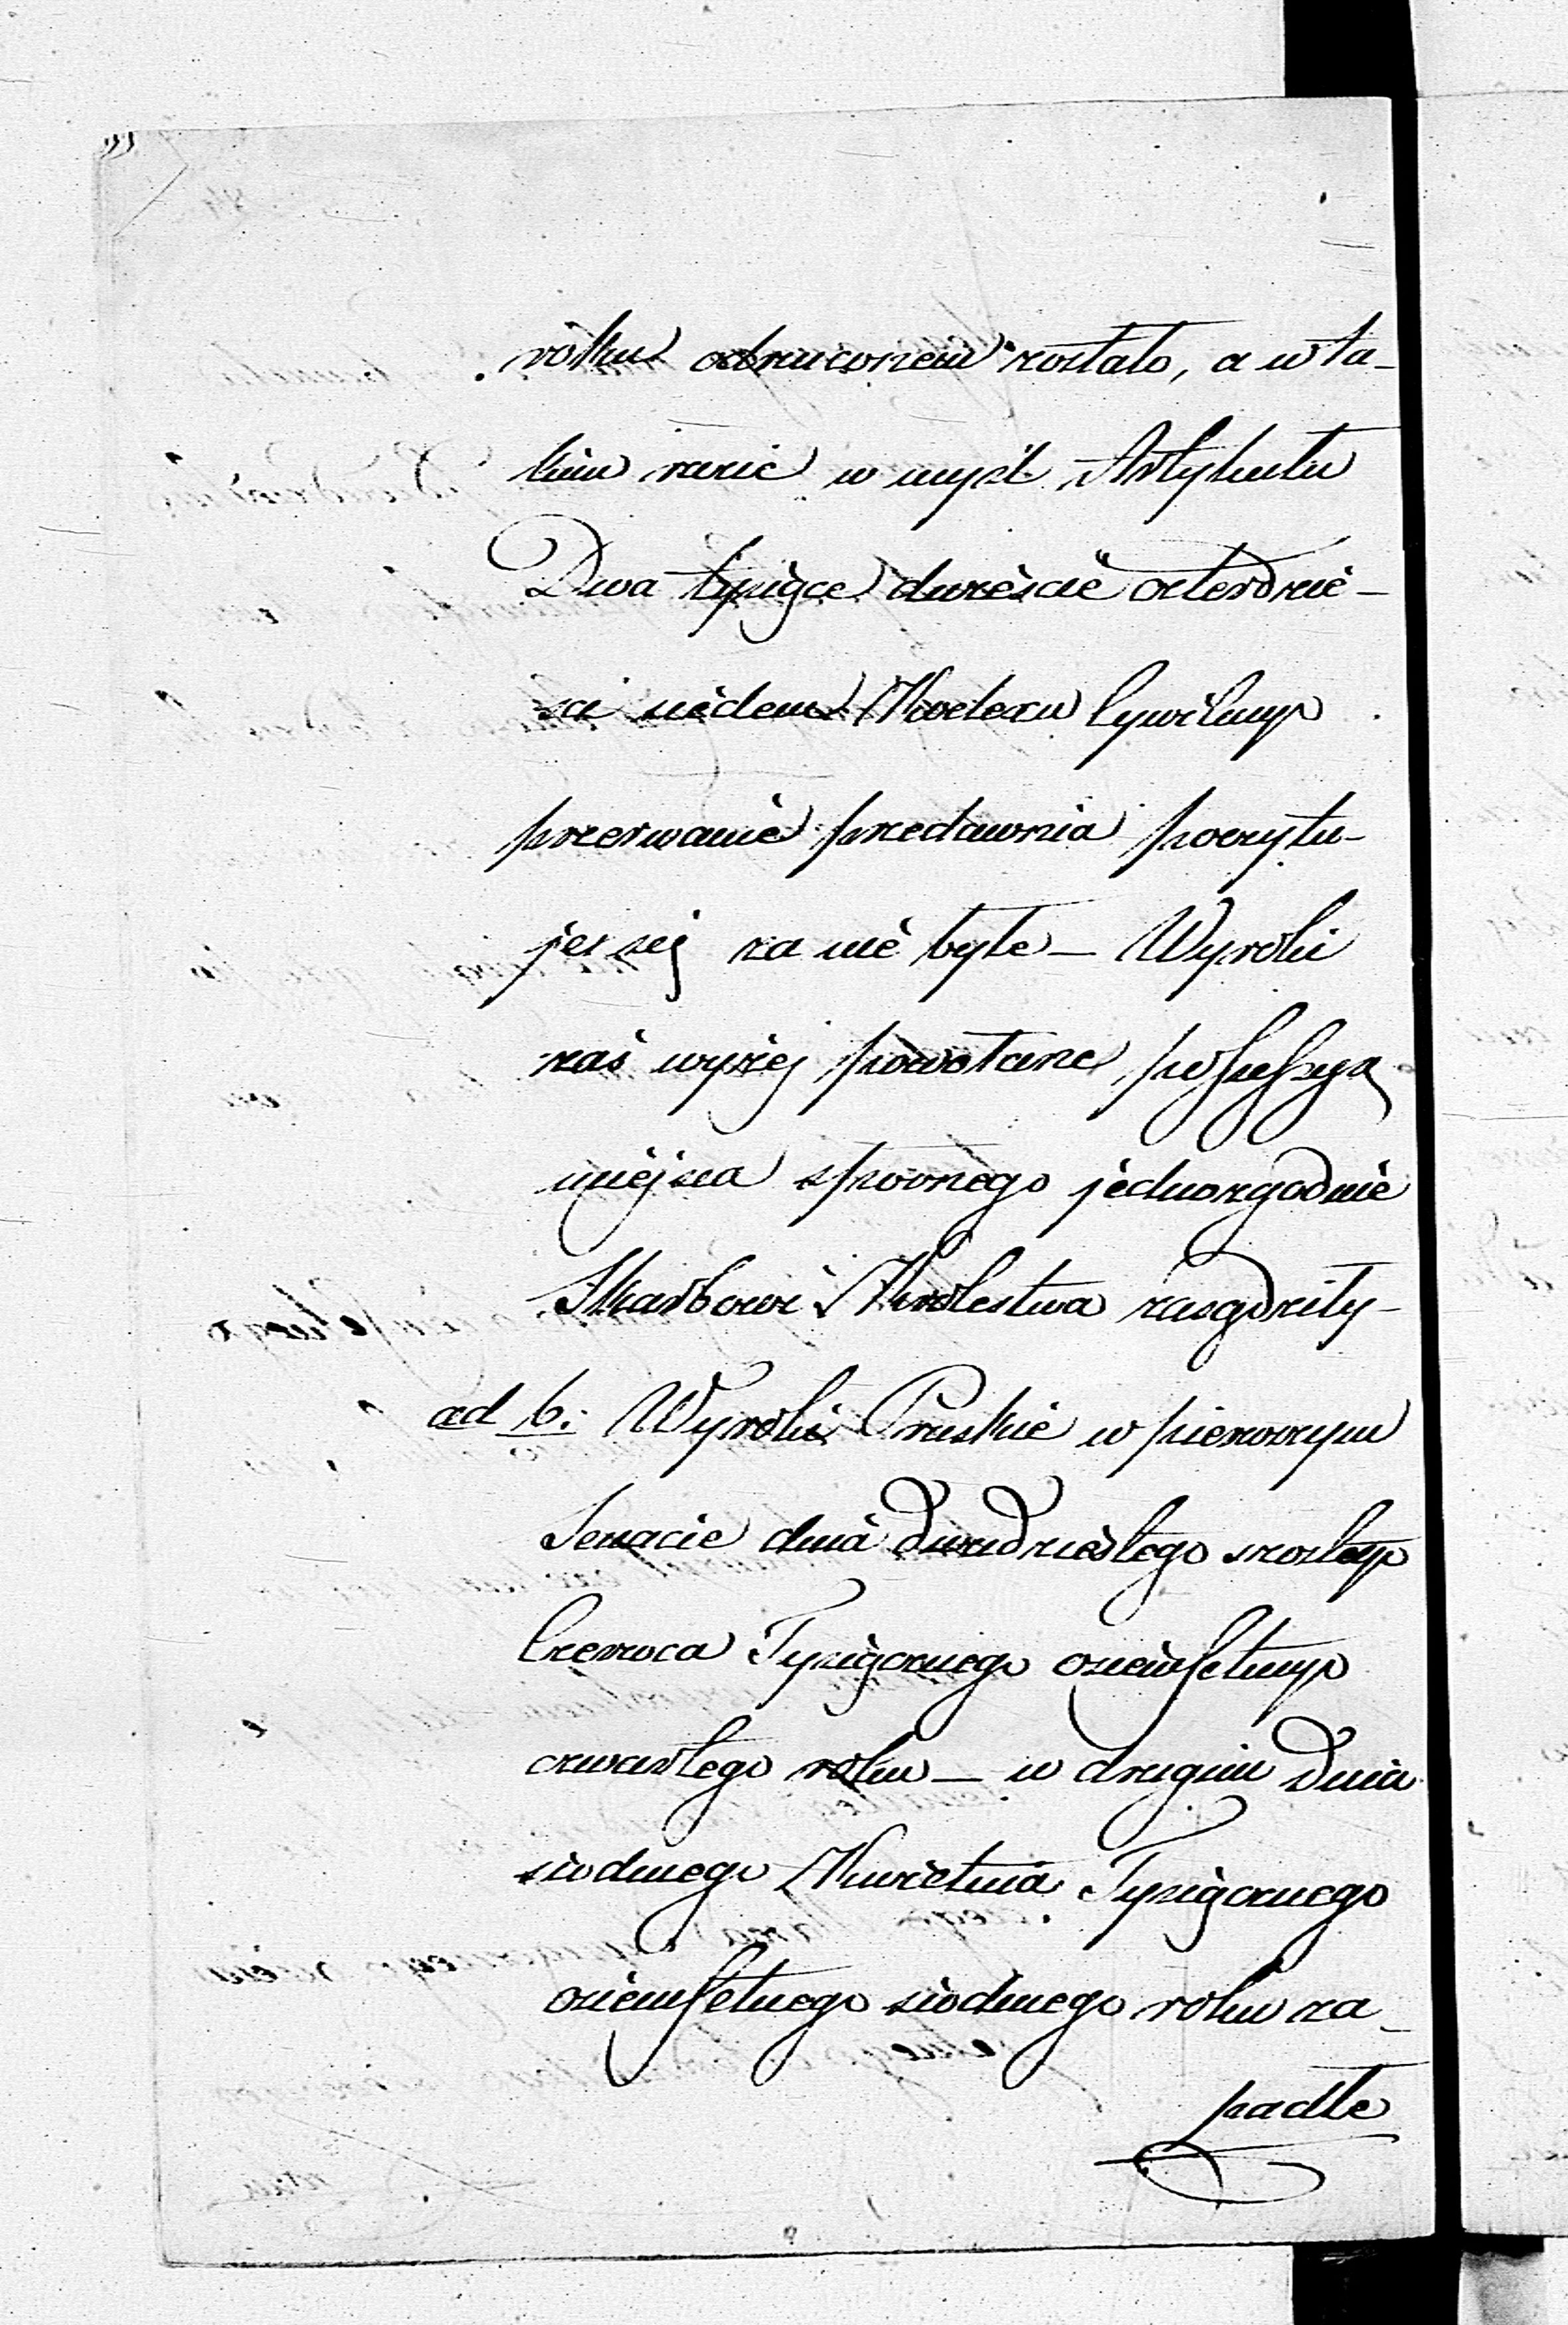 roku odrzuconem zostało, a w ta-
kim razie w myśl Artykułu
Dwa tysiące dwieście czterdzie-
sci siedem Kodexu Cywilnego
przerwanie przedawnia poczytu-
je się za nie byłe – Wyroki
zaś wyżej powołane possessyą
miejsca spornego jednozgodnie
Skarbowi Krolestwa zasądziły –
ad 6: Wyroki Pruskie w pierwszym
Senacie dnia dwudziestego szostego
Czerwca Tysiącznego ośiemsetnego
czwartego roku – w drugim dnia
siodmego Kwietnia Tysiącznego
ośiemsetnego siodmego roku za-
padłe